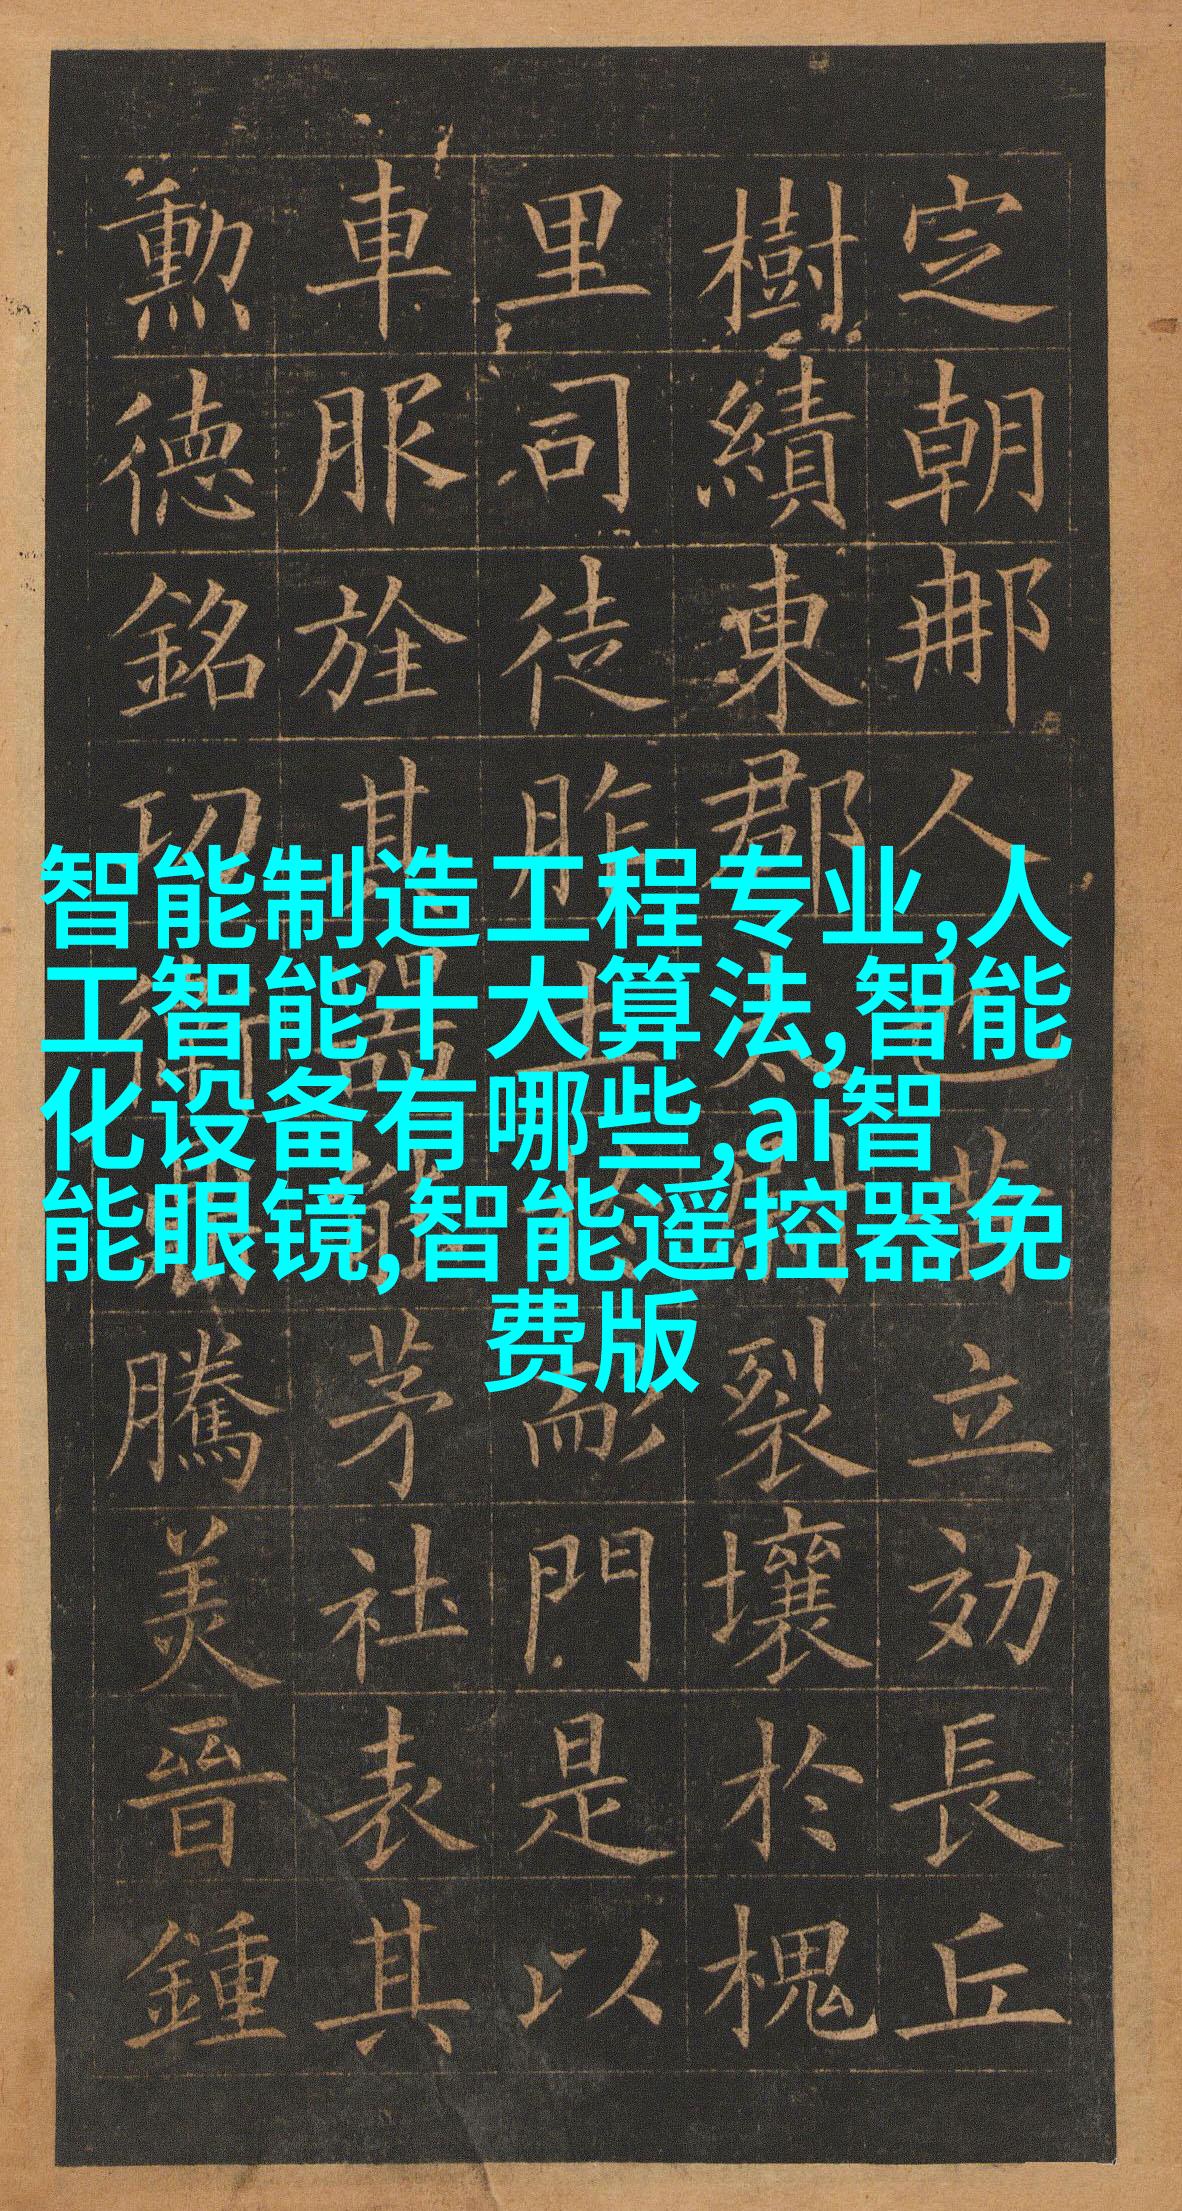 智能制造工程专业,人
工智能十大算法,智能
化设备有哪些,ai智
能眼镜,智能遥控器免
费版
定朝那人也昔立効長丘
樹績東郡太尉裂壤於槐
里司徒胙土於耏門是以
車服旌其器能茅社表其
勳德銘功衛鼎騰美晉鍾